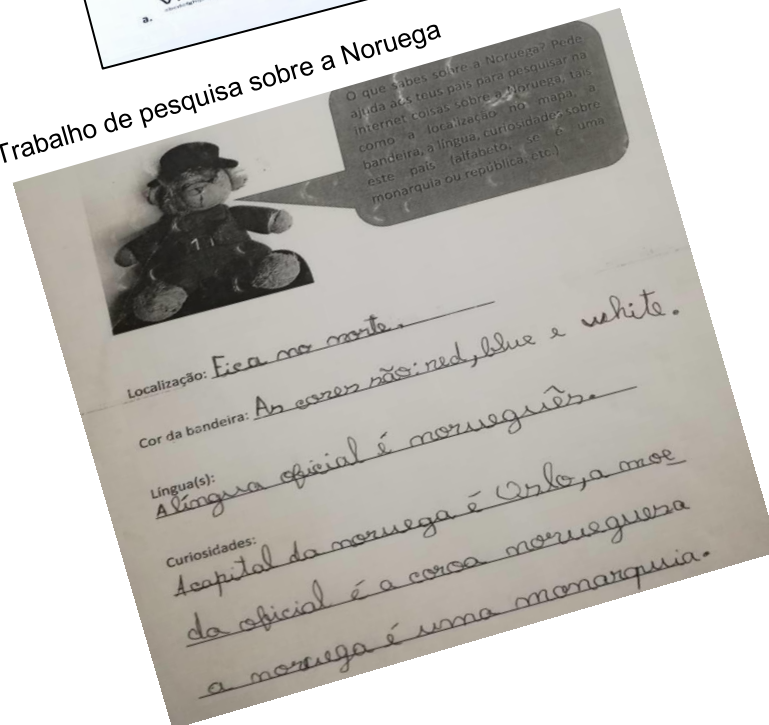 a.
Trabalho de pesquisa sobre a Noruega
O que sabes sobre a Noruega? Pede
ajuda aos teus pais para pesquisar na
internet coisas sobre a Noruega, tais
como a localização no mapa, a
bandeira, a língua, curiosidades sobre
este país (alfabeto, se é uma
monarquia ou república, etc.)
Localização: Fica no norte.
Cor da bandeira: As cores são: red, blue e white.
Língua(s):
A língua oficial é norueguês.
Curiosidades:
A capital da noruega é Oslo, a moe
da oficial é a coroa norueguesa
a noruega é uma monarquia.